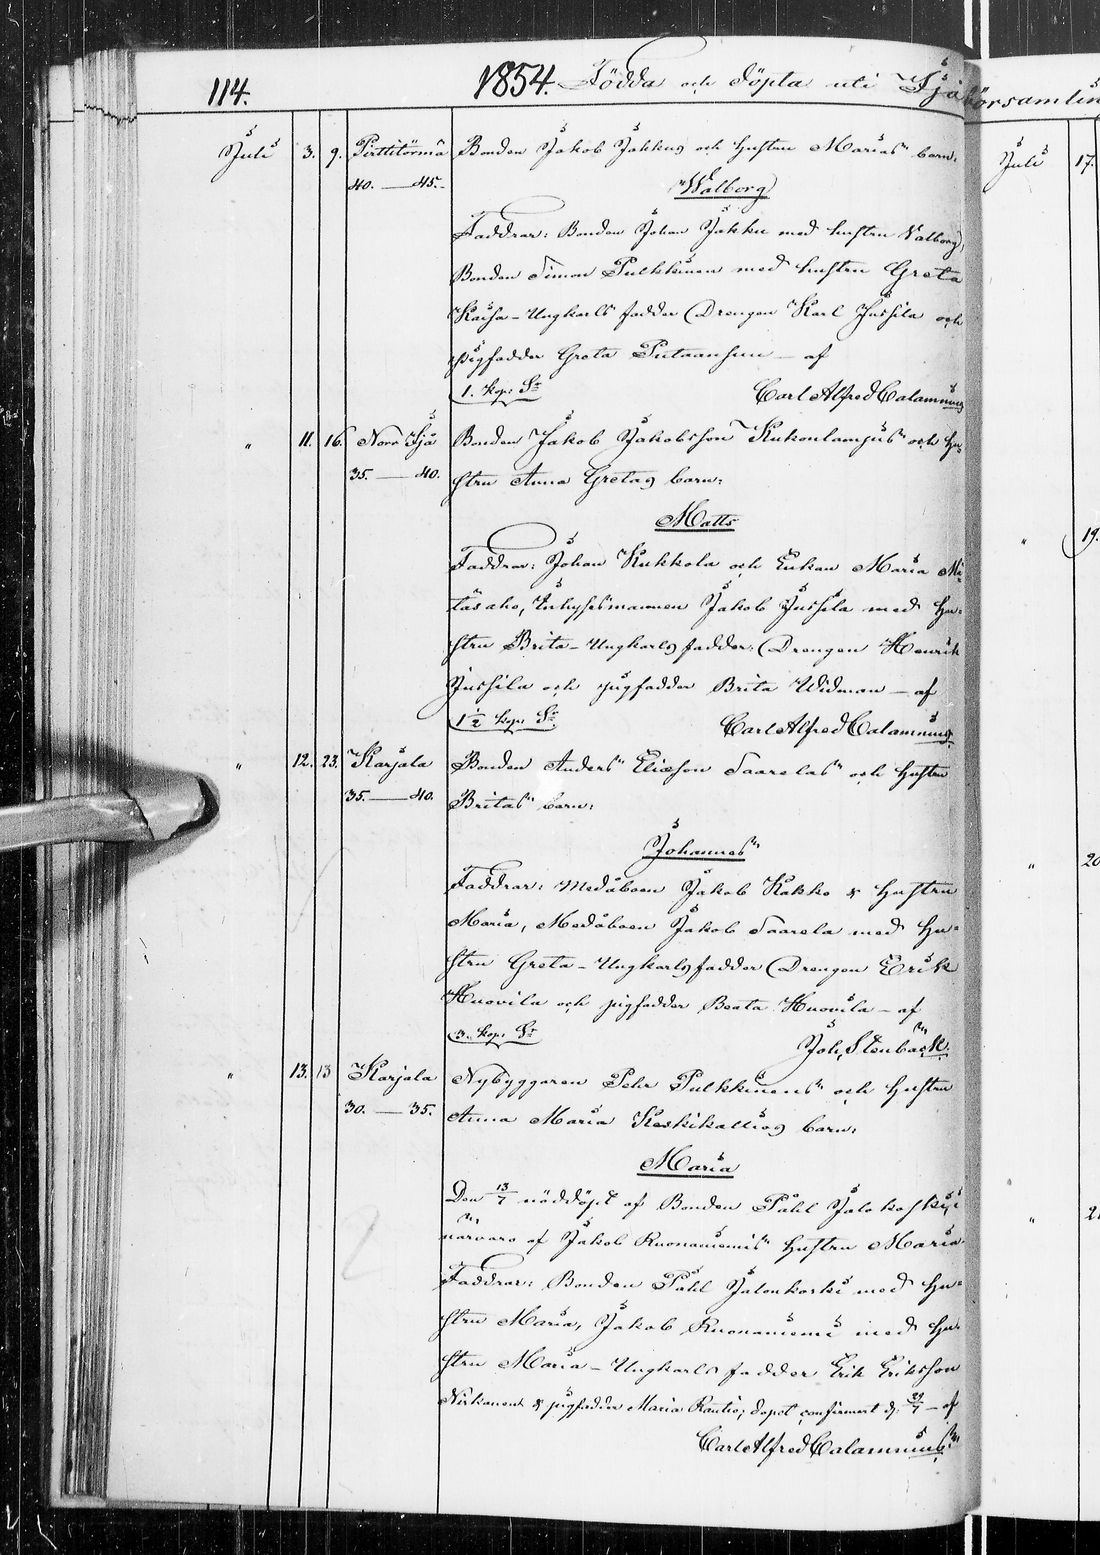 114.
1854. Födda och döpta uti Ijå
Juli 3. 9. Pirttitörmä Bonden Jakob Jakkus och hustru Marias barn:
40. — 45.
Walborg
Faddrar: Bonden Johan Jakku med hustru Valborg,
Bonden Simon Pulkkinen med hustru Greta
Kaisa - Ungkarls fadder Drengen Karl Jussila och
pigfadder Greta Putaansuu — af
1. kop. Sr
Carl Alfred Calamnius
" 11. 16. Norr Ijå Bonden Jakob Jakobsson Kukonlampis och hu-
35. — 40. stru Anna Gretas barn:
Matts
Faddrar: Johan Kukkola och Enkan Maria
aho, Inhysesmannen Jakob Jussila med hu-
stru Brita - Ungkarls fadder: Drengen Henrik
Jussila och pigfadder Brita Widman — af
1 1/2 kop. Sr
Carl Alfred Calamnius
" 12. 23. Karjala Bonden Anders Eliæson Saarelas och hustru
35. — 40. Britas barn:
Johannes
Faddrar: Medåboen Jakob Kakko & hustru
Maria, Medåboen Jakob Saarela med hu-
stru Greta - Ungkarls fadder Drengen Erik
Huovila och pigfadder Beata Huovila — af
3. kop. Sr
Joh. Stenbäck.
" 13. 13 Karjala Nybyggaren Pehr Pulkkinens och hustru
30. — 35. Anna Maria Keskikallios barn:
Maria
Den 13/7 nöddöpt af Bonden Påhl i
närvaro af Jakob Kuonaniemis hustru Maria
Faddrar: Bonden Påhl Jalonkoski med hu-
stru Maria, Jakob Kuonaniemi med hu-
stru Maria - Ungkarls fadder Erik Eriksson
& pigfadder Maria Rautio; dopet confirmert d: 29/7 — af
Carl Alfred Calamnius
örsamlin
Juli 17.
" 19.
" 20
" 2